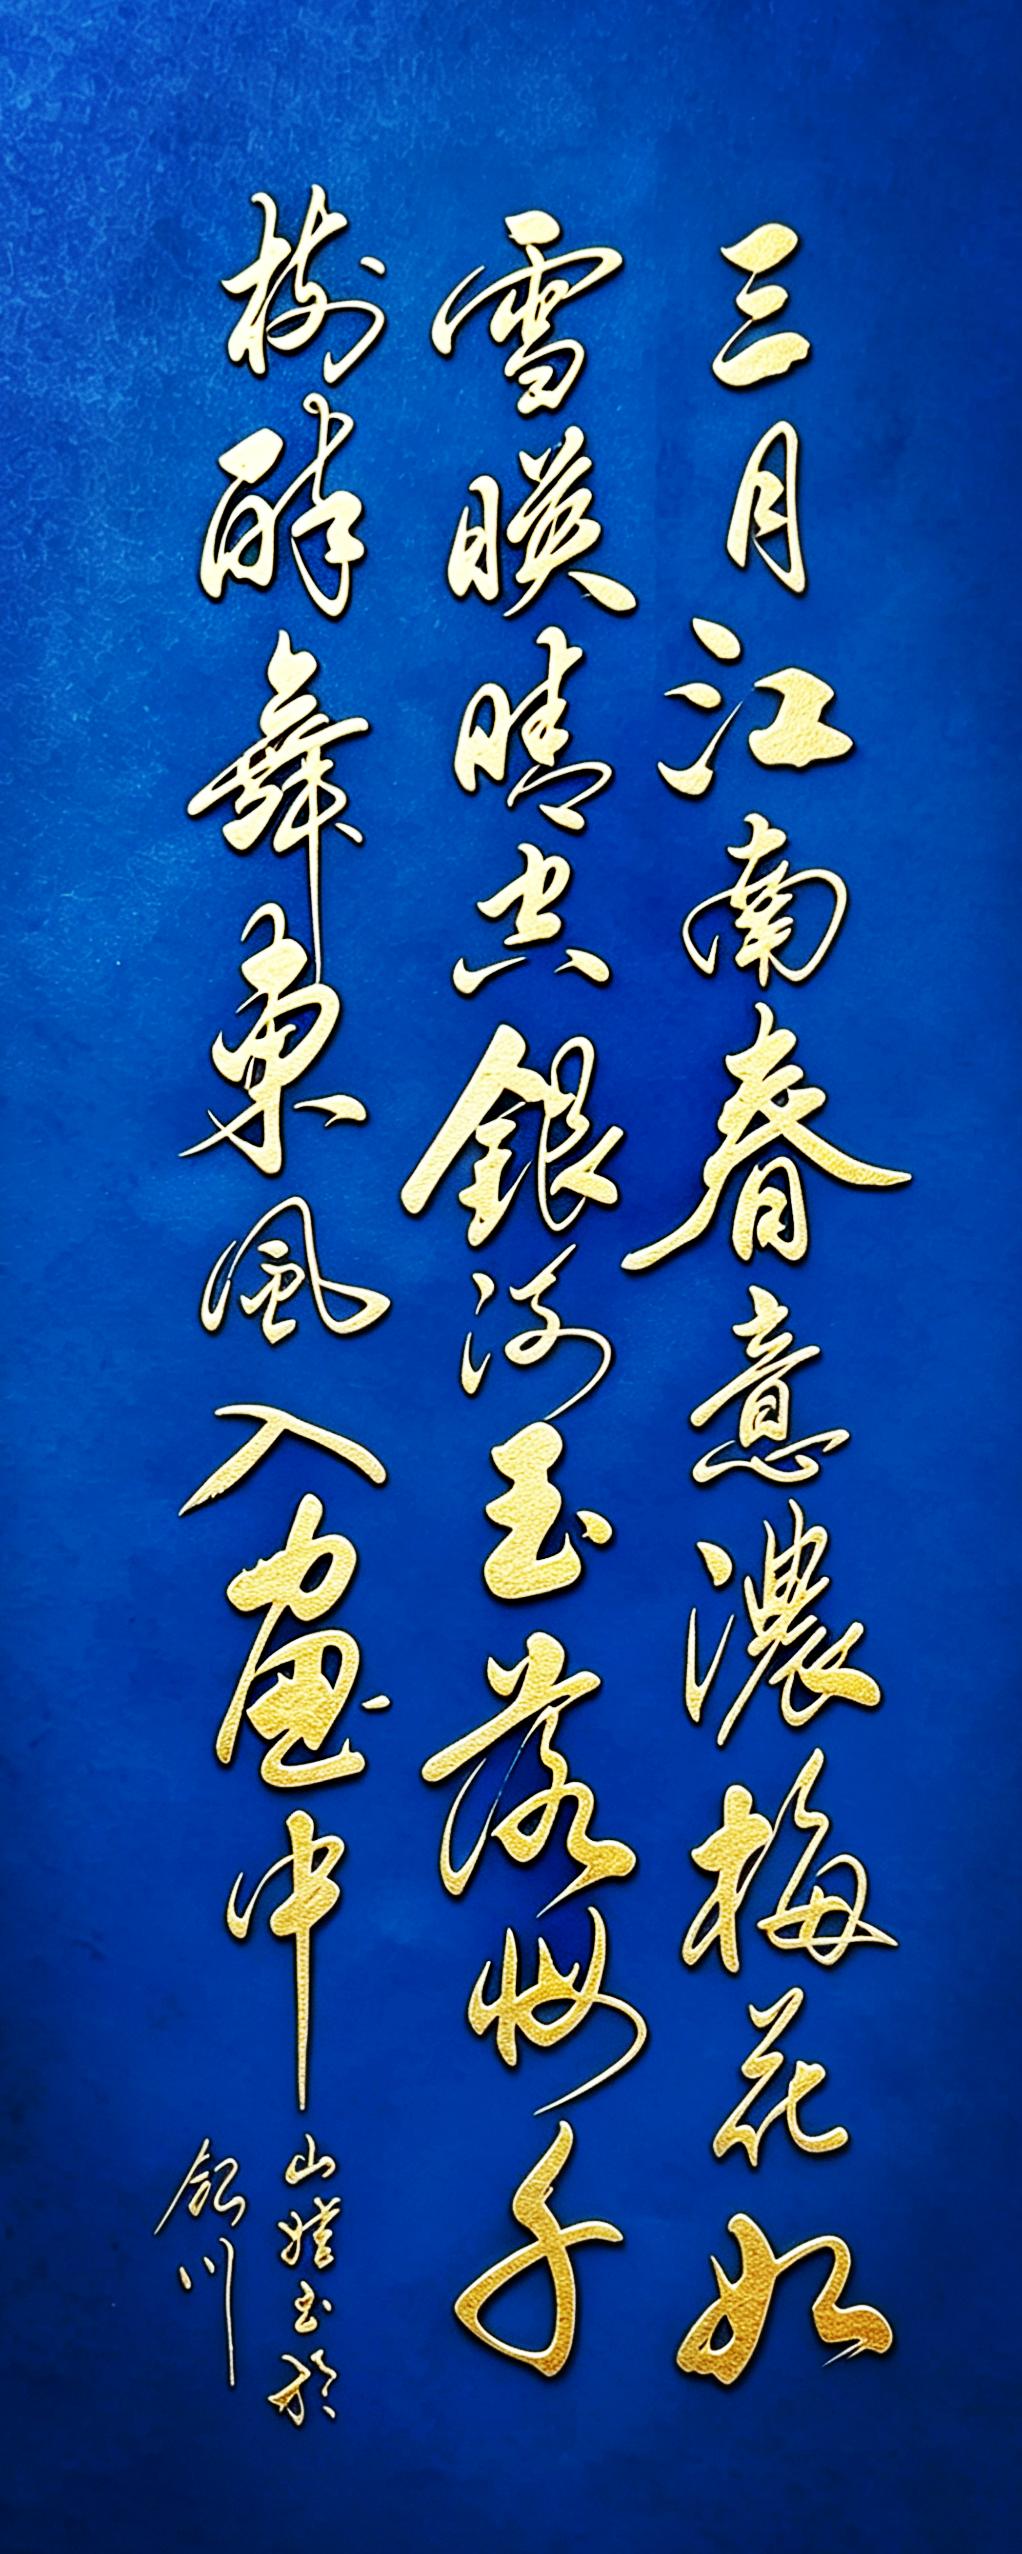 三月江南春意濃梅花如
雪暎晴空銀河玉落妝千
樹醉舞東風入画中
山 书於
銀川